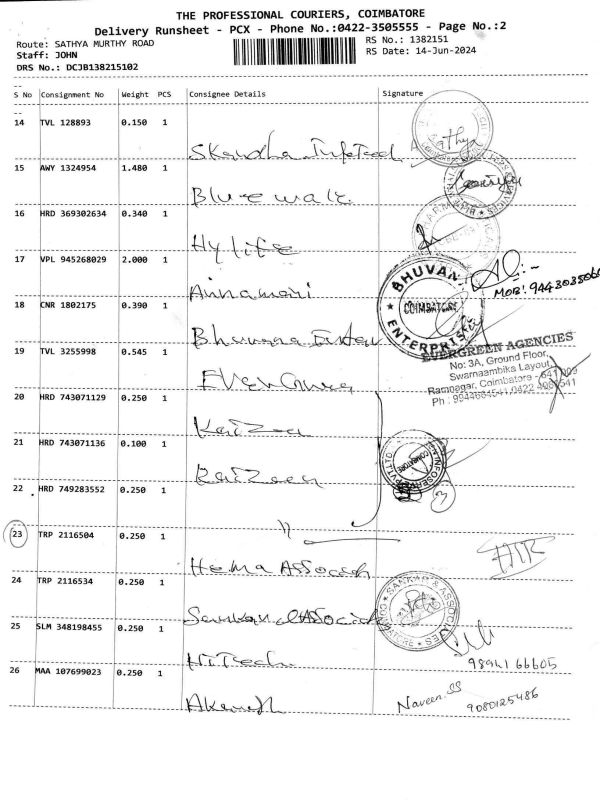 THE PROFESSIONAL COURIERS, COIMBATORE
Delivery Runsheet - PCX - Phone No.:0422-3505555 - Page No.:2
Route: SATHYA MURTHY ROAD
RS No.: 1382151
Staff: JOHN
RS Date: 14-Jun-2024
DRS No.: DCJB138215102
S No Consignment No Weight PCS Consignee Details Signature
14 TVL 128893 0.150 1
Sathya
Skandha Infotech
15 AWY 1324954 1.480 1
Blue wale
16 HRD 369302634 0.340 1
Hylife
17 VPL 945268029 2.000 1
Annamari
BHUVANA ENTERPRISES
COIMBATORE
18 CNR 1802175 0.390 1
Bhuvana Enter
19 TVL 3255998 0.545 1
EVERGREEN AGENCIES
No: 3A, Ground Floor,
Swarnaambika Layout,
Ramnagar, Coimbatore - 641 009
Evergreen
20 HRD 743071129 0.250 1
Kaizen
21 HRD 743071136 0.100 1
Kaizeen
COIMBATORE
22 HRD 749283552 0.250 1
3
"
23 TRP 2116504 0.250 1
Hema Associate
24 TRP 2116534 0.250 1
SANKAR & ASSOCIATES
Sankar Associate
25 SLM 348198455 0.250 1
98941 66605
Hitech
26 MAA 107699023 0.250 1
Naveen.SS
9080125486
Akarsh